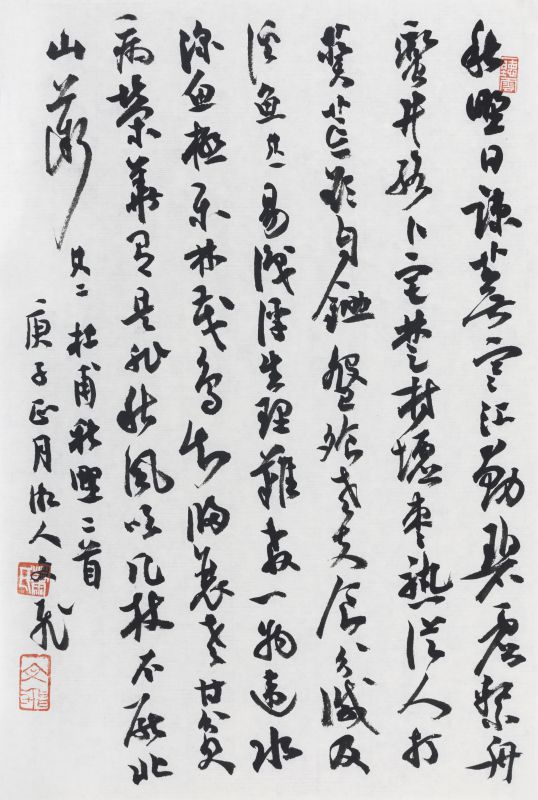 秋野日疎蕪寒江動碧虛繫舟
蠻井絡卜宅楚村墟棗熟從人打
葵荒欲自鋤盤飧老夫食分減及
溪魚其一易識浮生理難教一物違水
深魚極樂林茂鳥知歸衰老甘貧
病榮華有是非秋風吹几杖不厭北
山薇其二杜甫秋野二首
庚子正月湘人文飛